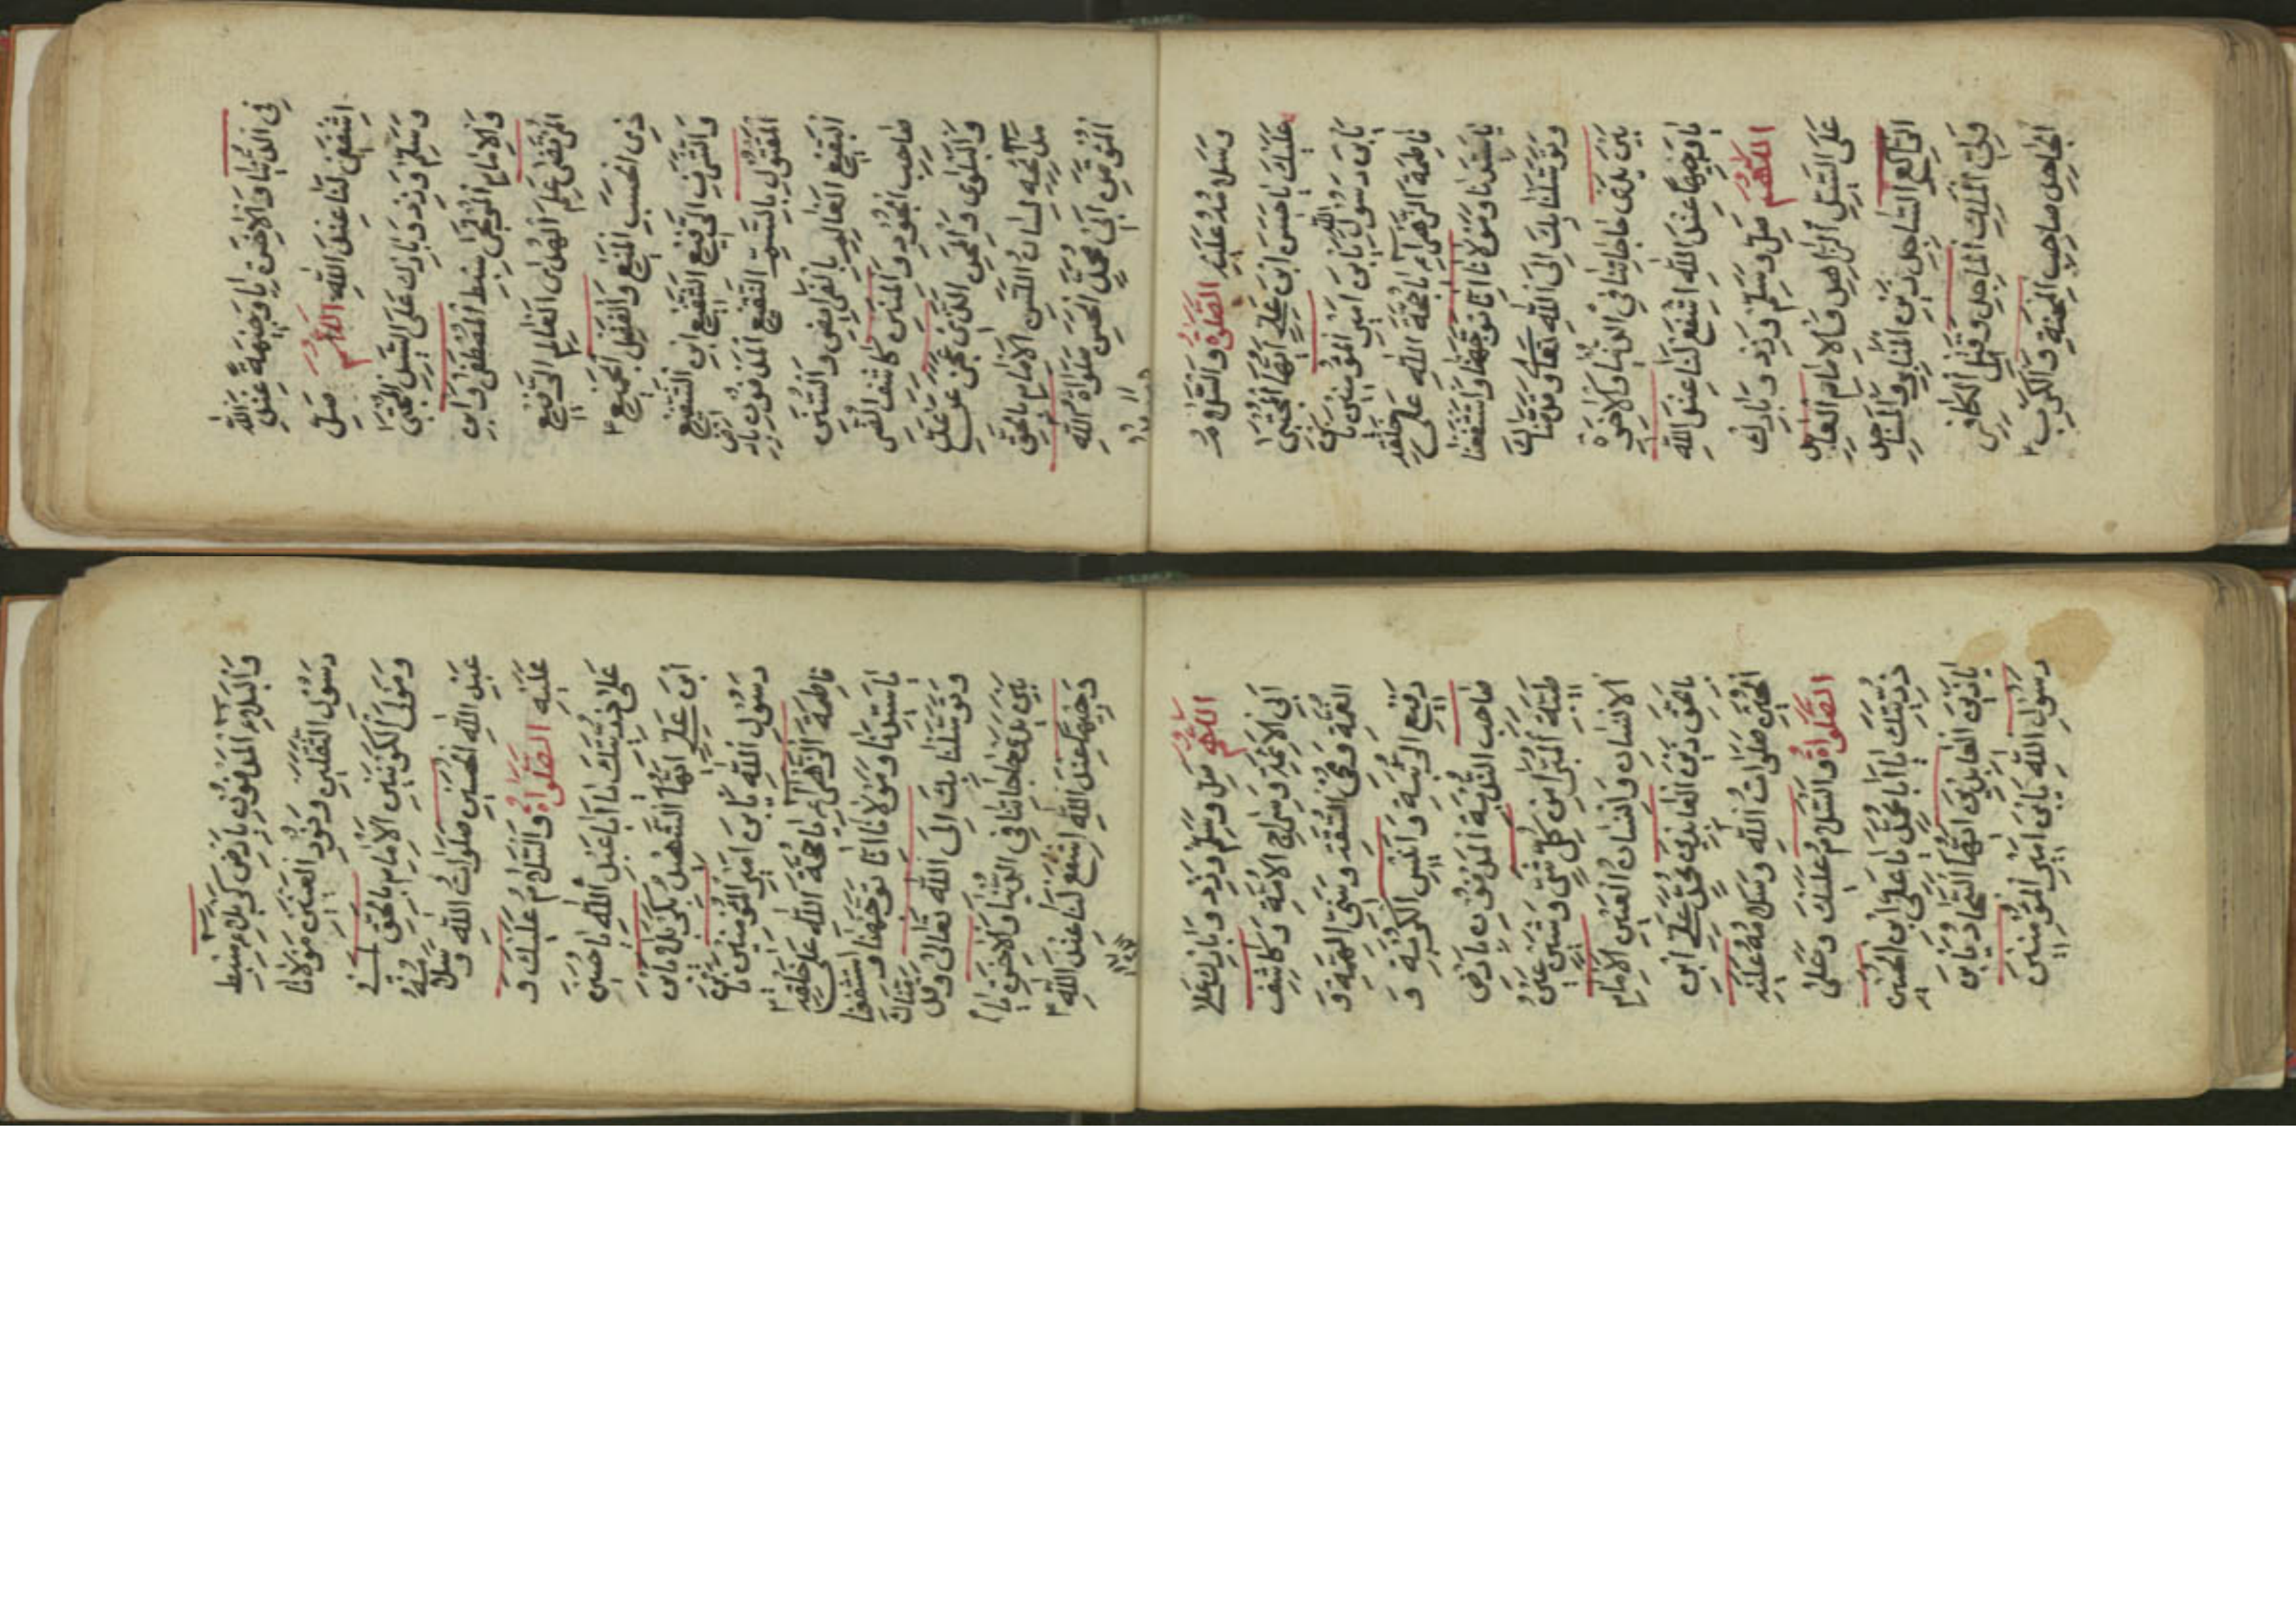 في الدُّنْيَا وَالْآخِرَةِ يَا وَجِيهَةً عِنْدَ اللهِ
اشْفَعِي لَنَا عِنْدَ اللهِ اللّهُمَّ صَلِّ
وَسَلِّمْ وَزِدْ وَبَارِكْ عَلَى السَّيِّدِ الْمُجْتَبَى
وَالْإِمَامِ الْمُرْتَجَى سِبْطِ الْمُصْطَفَى وَابْنِ
الْمُرْتَضَى عَلَمِ الْهُدَى الْعَالِمِ الرَّفِيعِ
ذِي الْحَسَبِ الْمَنِيعِ وَالْفَضْلِ الْجَمِيعِ
وَالشَّرَفِ الرَّفِيعِ الشَّفِيعِ ابْنِ الشَّفِيعِ
الْمَقْتُولِ بِالسَّمِّ النَّقِيعِ الْمَدْفُونِ بِأَرْضِ
الْبَقِيعِ الْعَالِمِ بِالْفَرَايِضِ وَالسُّنَنِ
صَاحِبِ الْجُودِ وَالْمِنَنِ كَاشِفِ الضُّرِّ
وَالْبَلْوَى وَالْمِحَنِ الَّذِي عَجَزَ عَنْ عَدِّ
مَدَايِحِهِ لِسَانُ اللَّسِنِ الْإِمَامِ بِالْحَقِّ
الْمُؤْتَمَنِ أَبِي مُحَمَّدٍ الْحَسَنِ صَلَوَاةُ اللهِ
وَسَلَامُهُ عَلَيْهِ الصَّلوةُ وَالسَّلَامُ
عَلَيْكَ يَا حَسَنَ ابْنَ عَلِيٍّ أَيُّهَا الْمُجْتَبَى
يَابْنَ رَسُولِ اللهِ يَابْنَ أَمِيرِ الْمُؤْمِنِينَ يَابْنَ
فَاطِمَةَ الزَّهْرَاءِ يَا حُجَّةَ اللهِ عَلَى خَلْقِهِ
يَا سَيِّدَنَا وَمَوْلَانَا إِنَّا تَوَجَّهْنَا وَاسْتَشْفَعْنَا
وَتَوَسَّلْنَا بِكَ إِلَى اللهِ تَعَالَى وَقَدَّمْنَاكَ
بَيْنَ يَدَيْ حَاجَاتِنَا فِي الدُّنْيَا وَالْآخِرَةِ
يَا وَجِيهًا عِنْدَ اللهِ اشْفَعْ لَنَا عِنْدَ اللهِ
اللّهُمَّ صَلِّ وَسَلِّمْ وَزِدْ وَبَارِكْ
عَلَى السَّيِّدِ الزَّاهِدِ وَالْإِمَامِ الْعَابِدِ
الرَّاكِعِ السَّاجِدِ زَيْنِ الْمَنَابِرِ وَالْمَسَاجِدِ
وَلِيِّ الْمَلِكِ الْمَاجِدِ وَقَتِيلِ الْكَافِرِ
الْجَاحِدِ صَاحِبِ الْمِحْنَةِ وَالْكَرْبِ
وَالْبَلَاءِ الْمَدْفُونِ بِأَرْضِ كَرْبَلَاءَ سِبْطِ
رَسُولِ الثَّقَلَيْنِ وَنُورِ الْعَيْنَيْنِ مَوْلَانَا
وَمَوْلَى الْكَوْنَيْنِ الْإِمَامِ بِالْحَقِّ أَبِي
عَبْدِ اللهِ الْحُسَيْنِ صَلَوَاتُ اللهِ وَسَلَامُهُ
عَلَيْهِ الصَّلَوَاةُ وَالسَّلَامُ عَلَيْكَ وَ
عَلَى ذُرِّيَّتِكَ يَا أَبَا عَبْدِ اللهِ يَا حُسَيْنَ
ابْنَ عَلِيٍّ أَيُّهَا الشَّهِيدُ بِكَرْبَلَاءَ يَابْنَ
رَسُولِ اللهِ يَابْنَ أَمِيرِ الْمُؤْمِنِينَ يَابْنَ
فَاطِمَةَ الزَّهْرَاءِ يَا حُجَّةَ اللهِ عَلَى خَلْقِهِ
يَا سَيِّدَنَا وَمَوْلَانَا إِنَّا تَوَجَّهْنَا وَاسْتَشْفَعْنَا
وَتَوَسَّلْنَا بِكَ إِلَى اللهِ تَعَالَى وَقَدَّمْنَاكَ
بَيْنَ يَدَيْ حَاجَاتِنَا فِي الدُّنْيَا وَالْآخِرَةِ يَا
وَجِيهًا عِنْدَ اللهِ اشْفَعْ لَنَا عِنْدَ اللهِ
اللّهُمَّ صَلِّ وَسَلِّمْ وَزِدْ وَبَارِكْ عَلَى
أَبِي الْأَئِمَّةِ وَسِرَاجِ الْأُمَّةِ وَكَاشِفِ
الْغُمَّةِ وَمُحْيِي السُّنَّةِ وَسَنِيِّ الْهِمَّةِ وَ
رَفِيعِ الرُّتْبَةِ وَأَنِيسِ الْكُرْبَةِ وَ
صَاحِبِ النُّدْبَةِ الْمَدْفُونِ بِأَرْضِ
طَيْبَةَ الْمُبَرَّا مِنْ كُلِّ شَيْنٍ عَيْنِ
الْإِنْسَانِ وَإِنْسَانِ الْعَيْنِ الْإِمَامِ
بِالْحَقِّ زَيْنِ الْعَابِدِينَ عَلِيِّ ابْنِ
الْحُسَيْنِ صَلَوَاتُ اللهِ وَسَلَامُهُ عَلَيْهِ
الصَّلَوَاةُ وَالسَّلَامُ عَلَيْكَ وَعَلَى
ذُرِّيَّتِكَ يَا أَبَا مُحَمَّدٍ يَا عَلِيَّ ابْنَ الْحُسَيْنِ
يَا زَيْنَ الْعَابِدِينَ أَيُّهَا السَّجَّادُ يَابْنَ
رَسُولِ اللهِ يَابْنَ أَمِيرِ الْمُؤْمِنِينَ